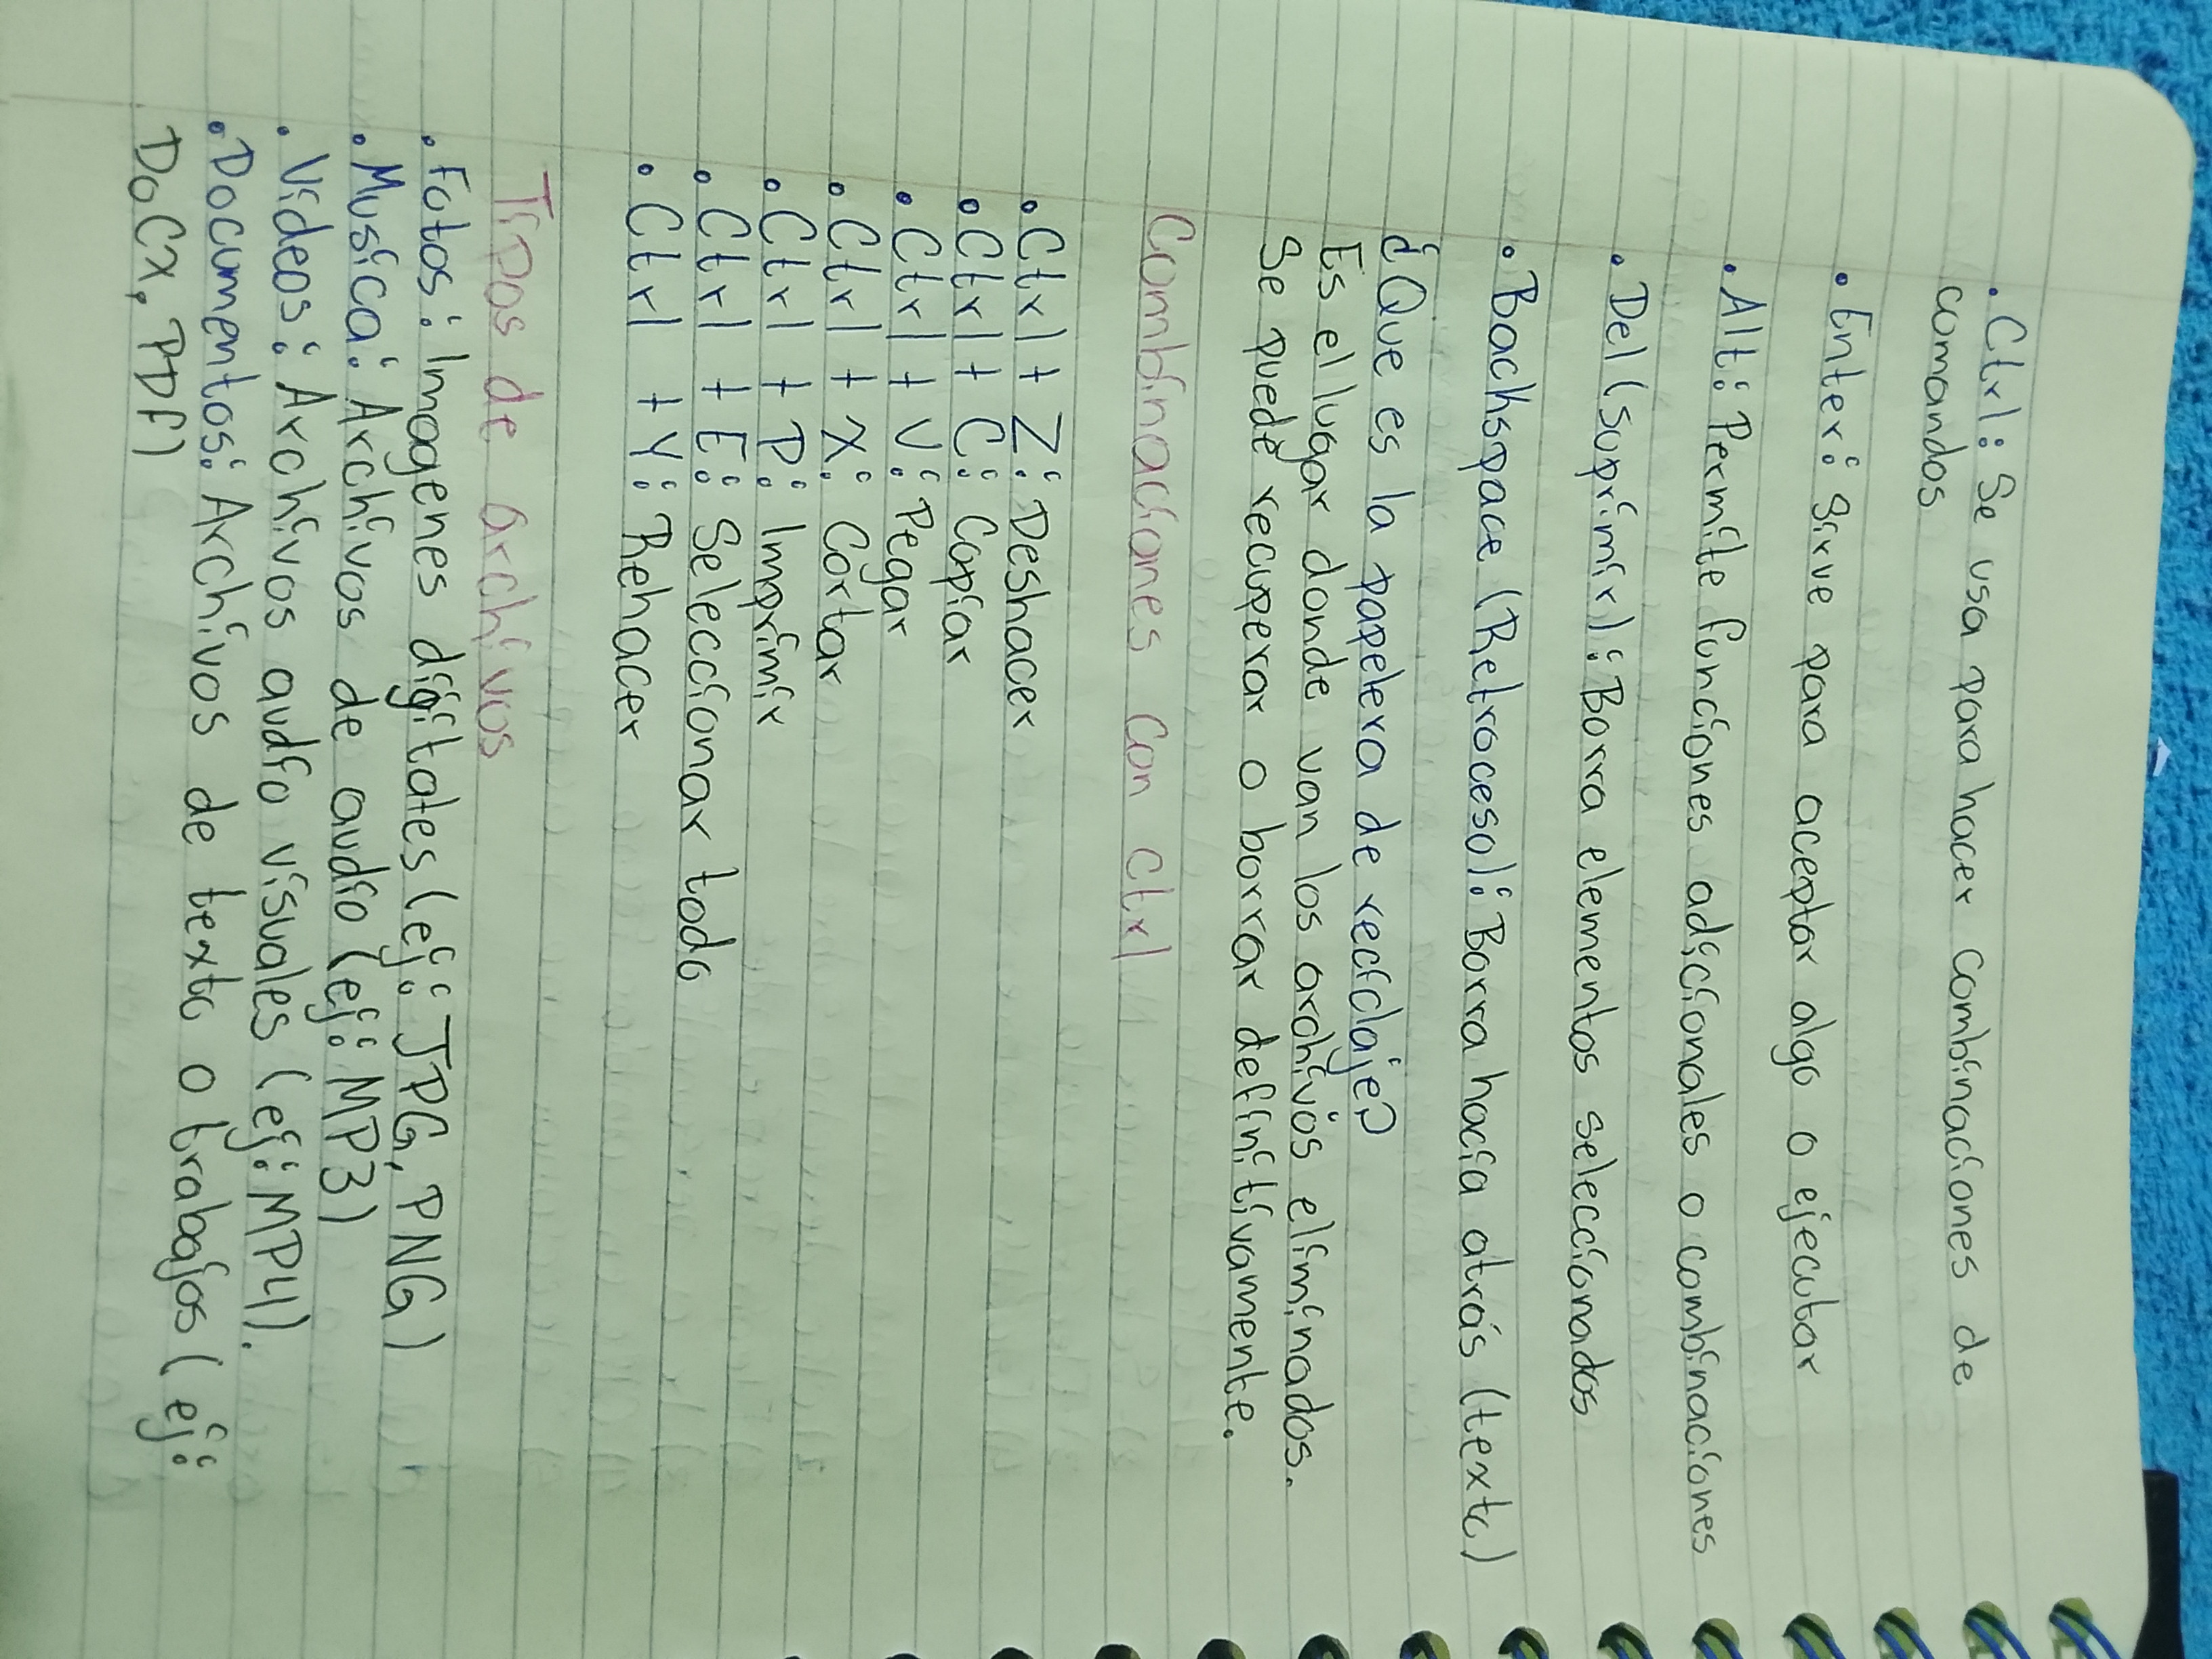 . Ctrl: Se usa para hacer combinaciones de
comandos
. Enter: Sirve para aceptar algo o ejecutar
. Alt: Permite funciones adicionales o combinaciones
. Del (suprimir): Borra elementos seleccionados
. Bachspace (Retroceso): Borra hacia atrás (texto)
¿Que es la papelera de reciclaje?
Es el lugar donde van los archivos eliminados.
Se puede recuperar o borrar definitivamente.
Combinaciones con ctrl
. Ctrl + Z: Deshacer
. Ctrl + C: Copiar
. Ctrl + V: Pegar
. Ctrl + X: Cortar
. Ctrl + P: Imprimir
. Ctrl + E: Seleccionar todo
. Ctrl + Y: Rehacer
Tipos de archivos
. Fotos: Imagenes digitales (ej: JPG, PNG)
. Musica: Archivos de audio (ej: MP3)
. Videos: Archivos audio visuales (ej: MP4).
. Documentos: Archivos de texto o trabajos (ej:
DoCx, PDF)